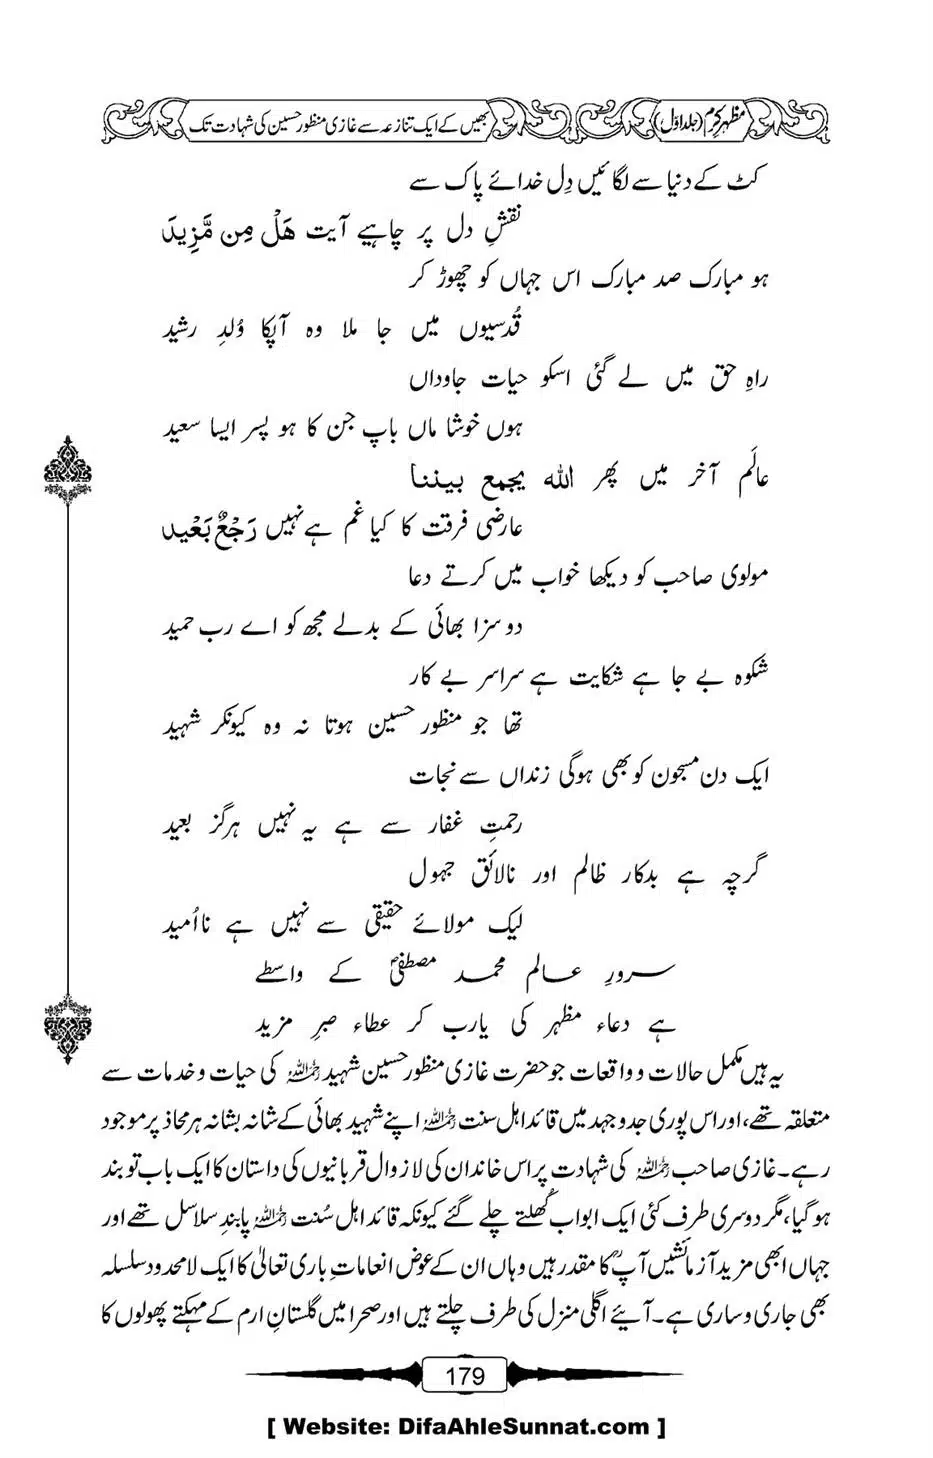 مظہرِ کرم (جلد اوّل)
بھیں کے ایک تنازعہ سے غازی منظور حسین کی شہادت تک
کٹ کے دنیا سے لگائیں دِل خدائے پاک سے
نقشِ دل پر چاہیے آیت هَلْ مِن مَّزِيدَ
ہو مبارک صد مبارک اس جہاں کو چھوڑ کر
قُدسیوں میں جا ملا وہ آپکا وُلدِ رشید
راہِ حق میں لے گئی اسکو حیات جاوداں
ہوں خوشا ماں باپ جن کا ہو پسر ایسا سعید
عالَم آخر میں پھر اللہ یجمع بیننا
عارضی فرقت کا کیا غم ہے نہیں رَجْعٌ بَعْیِد
مولوی صاحب کو دیکھا خواب میں کرتے دعا
دو سزا بھائی کے بدلے مجھ کو اے رب حمید
شکوہ بے جا ہے شکایت ہے سراسر بے کار
تھا جو منظور حسین ہوتا نہ وہ کیونکر شہید
ایک دن مسجون کو بھی ہوگی زنداں سے نجات
رحمتِ غفار سے ہے یہ نہیں ہرگز بعید
گرچہ ہے بدکار ظالم اور نالائق جہول
لیک مولائے حقیقی سے نہیں ہے نااُمید
سرورِ عالم محمد مصطفیٰؐ کے واسطے
ہے دعاء مظہر کی یارب کر عطاء صبرِ مزید
یہ ہیں مکمل حالات و واقعات جو حضرت غازی منظور حسین شہید رحمہ اللہ کی حیات و خدمات سے
متعلقہ تھے، اور اس پوری جدوجہد میں قائد اہل سنت رحمہ اللہ اپنے شہید بھائی کے شانہ بشانہ ہر محاذ پر موجود
رہے۔ غازی صاحب رحمہ اللہ کی شہادت پر اس خاندان کی لازوال قربانیوں کی داستان کا ایک باب تو بند
ہو گیا، مگر دوسری طرف کئی ایک ابواب کُھلتے چلے گئے کیونکہ قائد اہل سُنت رحمہ اللہ پابندِ سلاسل تھے اور
جہاں ابھی مزید آزمائشیں آپؒ کا مقدر ہیں وہاں ان کے عوض انعاماتِ باری تعالیٰ کا ایک لامحدود سلسلہ
بھی جاری و ساری ہے۔ آیئے اگلی منزل کی طرف چلتے ہیں اور صحرا میں گلستانِ ارم کے مہکتے پھولوں کا
179
[ Website: DifaAhleSunnat.com ]